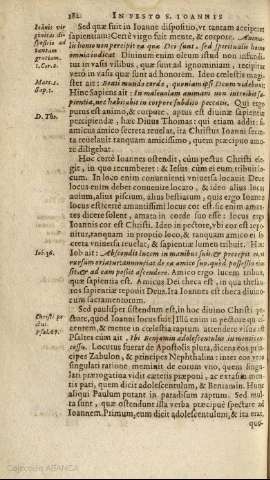 182 IN FESTO S. IOANNIS
Ioannis vir-
ginitas di-
spositio ad
tantam
gratiam.
1. Cor. 2.
Sed quæ fuit in Ioanne dispositio, vt tantam acciperet
sapientiam? Certè virgo fuit mente, & corpore.
lis homo non percipit ea quæ Dei sunt, sed spiritualis homo
omnia iudicat. Diuinum enim otium
ratione in vasis visibili, quæ sunt ad ignominiam, recipitur
verò in vasis quæ sunt ad honorem. Ideo cœlestis magi-
ster ait: Beati mundo corde, quoniam ipsi Deum videbunt.
Hinc Sapiens ait: In maleuolam animam non introibit sa-
pientia, nec habitabit in corpore subdito peccatis. Qui ergo
purus est animo, & corpore, aptus est diuinæ sapientiæ
percipiendæ, huic Diuus Thomas: qui etiam addit:
amicus amico secreta reuelat, ita Christus Ioanni secre-
ta reuelauit tanquam amicissimo, quem præcipuo amo-
re diligebat.
Matt. 5.
Sap. 1.
D. Tho.
Hoc certè Ioannes ostendit, cùm pectus Christi ele-
git, in quo recumberet: & Iesus cùm ei eum
cum. In loco enim conuenienti viuens is locauit. Deus
locus enim debet conuenire locato, & ideo alius locus
auium, alius piscium, alius bestiarum, quis ergo Ioannis
locus est? certè amantissimi locus est
tes dicere solent, amata in corde suo esse: locus ergo
Ioannis cor est Christi. Ideo in pectore, vbi cor est
nitur, tanquam in proprio loco, & tanquam amico
creta vniuersa reuelat, & sapientiæ lumen tribuit. Hæc
Iob ait: Abscondit lucem in manibus suis: & præcepit ei vt
rursum
sit, & ad eam possit ascendere. Amico ergo lucem tribuit,
quæ sapientia est. Amicus Dei theca est, in qua thesau-
ros sapientiæ reponit Deus. Ita Ioannes est theca diuino-
rum sacramentorum.
Iob. 36.
Sed paulisper sistendum est, in hoc diuino Christi pe-
ctore, quod Ioanni locus fuit. Illū enim in pectore
centem, & mente in cœlestia raptum attendere visus est
Psaltes cùm ait, Ibi Beniamin adolescentulus in mentis ex-
cessu. Locutus fuerat de Apostolis plura, dicens eos prin-
cipes Zabulon, & principes Nephthalim: inter eos verò
singulari ratione meminit de eorum vno, quem singu-
lari prærogatiua vidit cæteris præponi, ac extasim men-
tis pati, quem dicit adolescentulum, & Beniamin. Hunc
aliqui Paulum putant in paradisum raptum. Sed mul-
ta sunt, quæ ostendunt illa verba præcipuè spectare ad
Ioannem. Primum, eum dicit adolescentulum, & ita erat.
Christi pe-
ctus.
Psal. 67.
quo-
Colección ABANCA